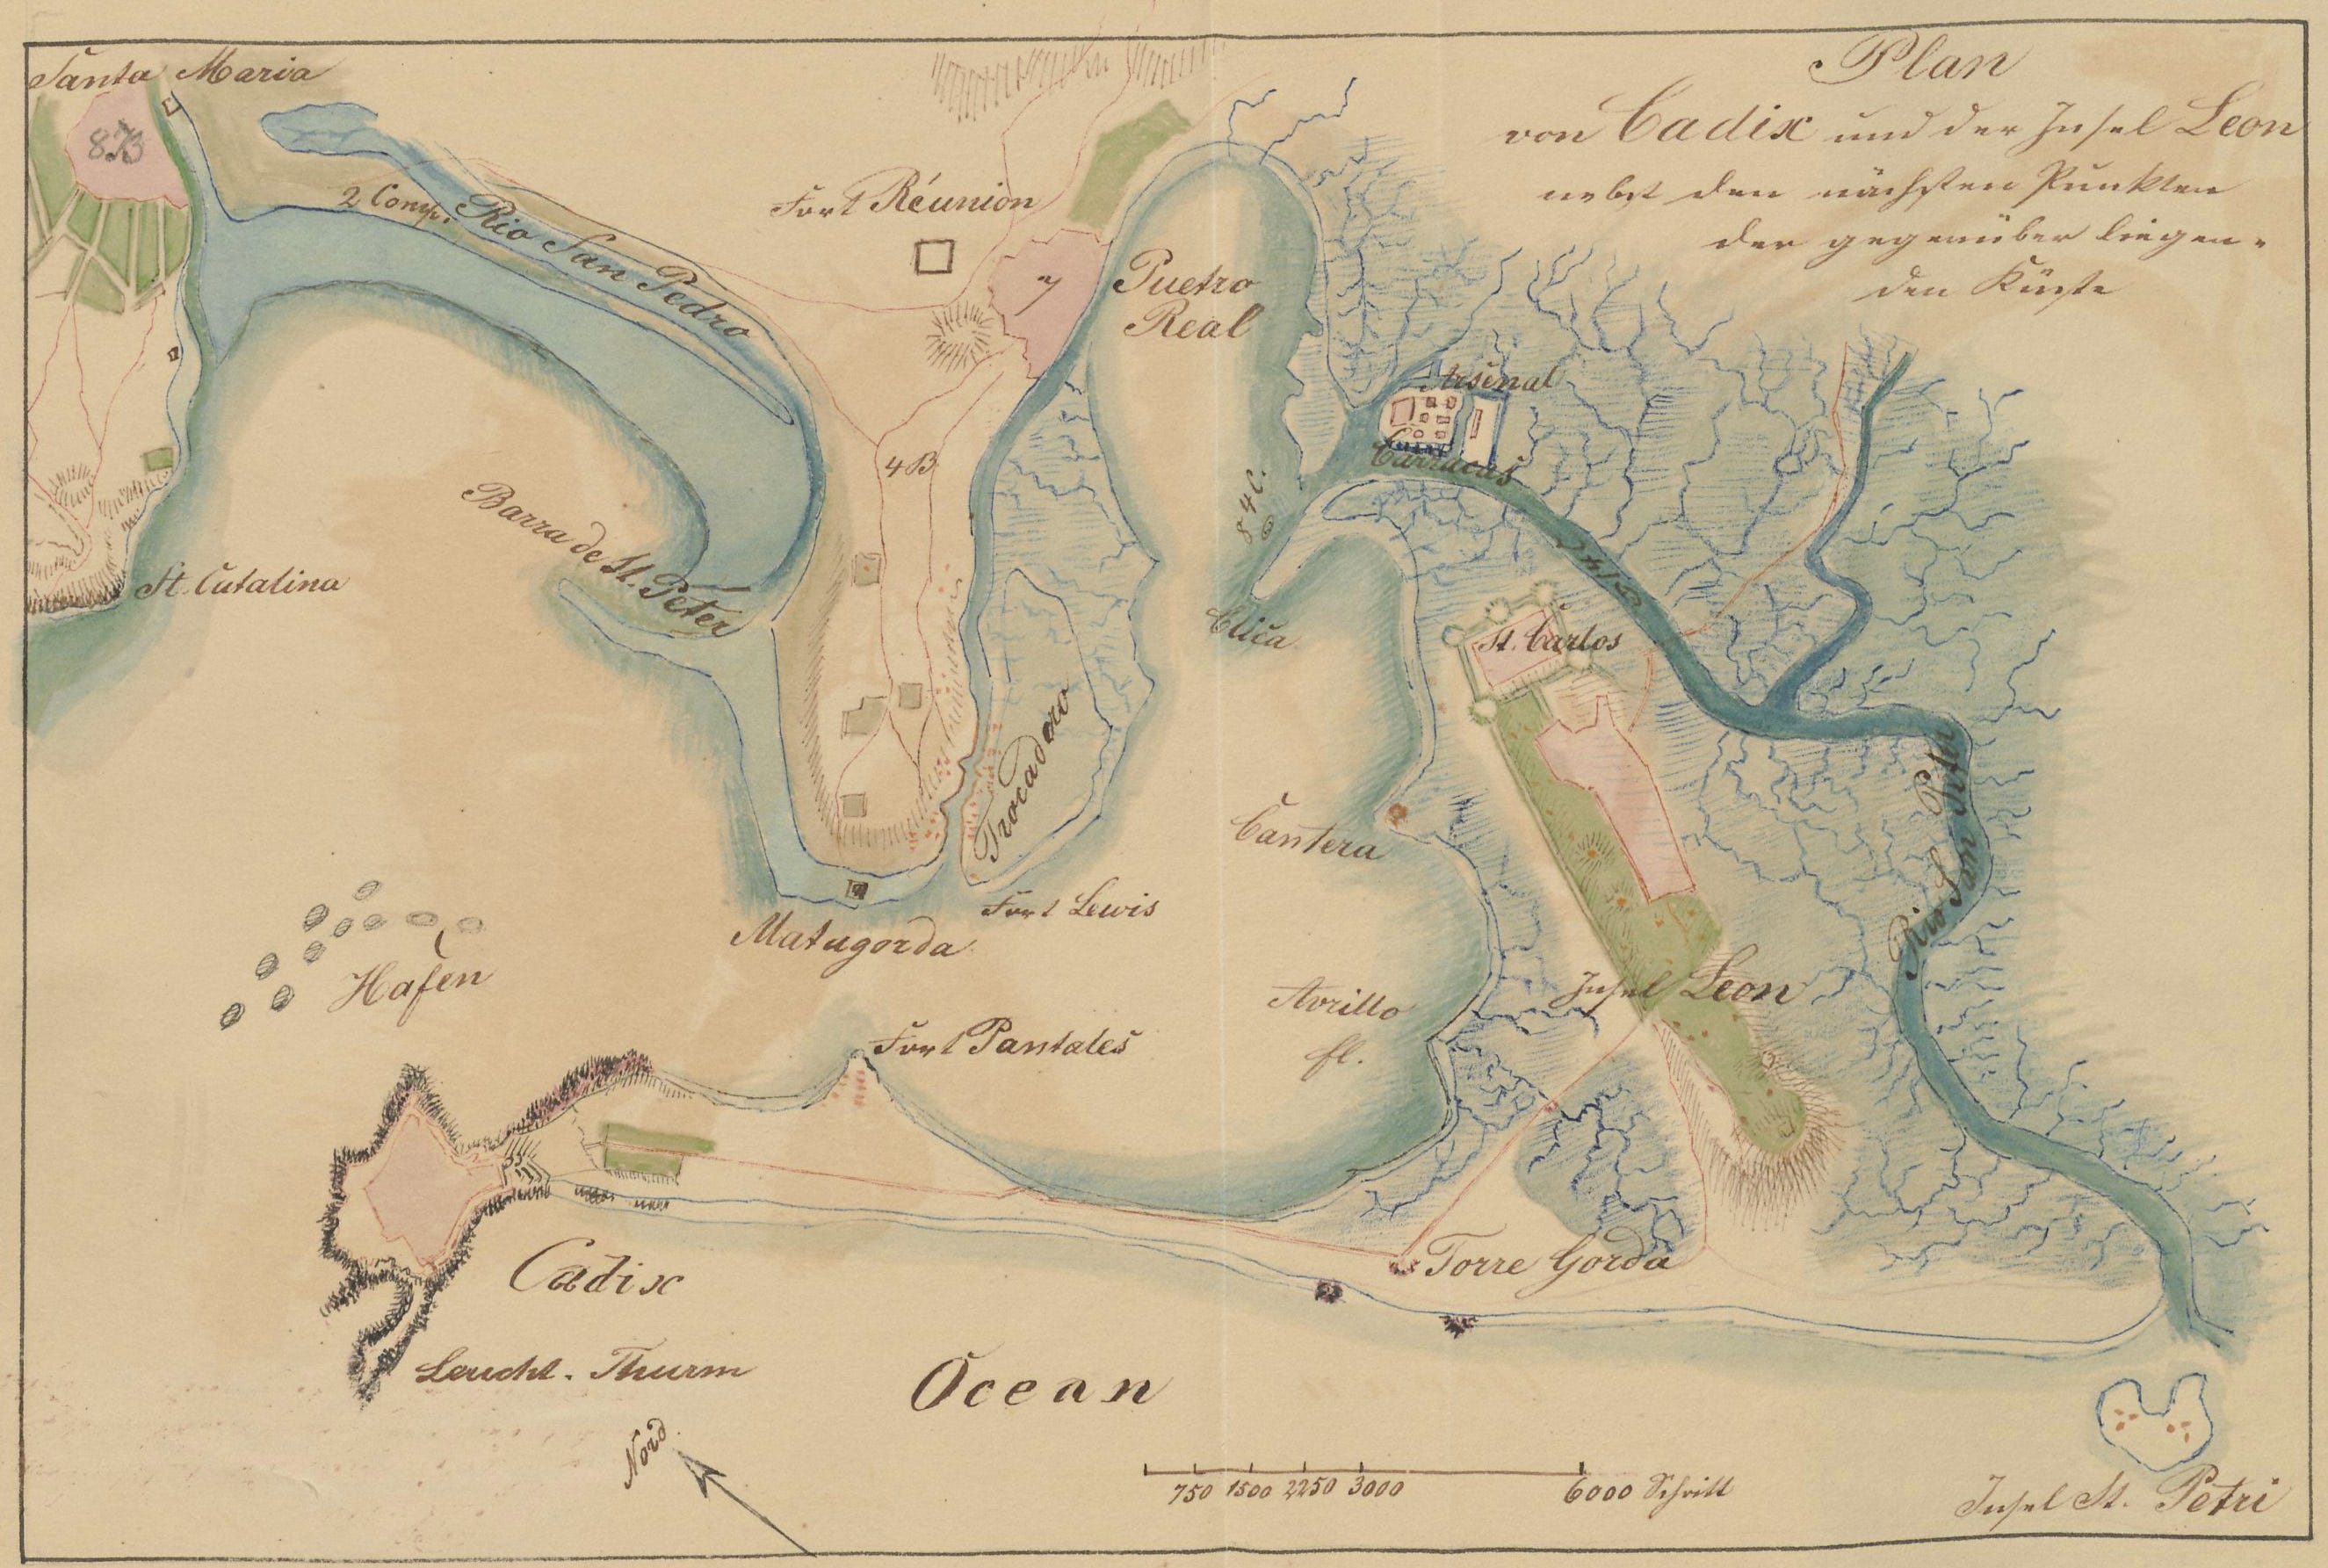 Plan
von Cadix und der Insel Leon
nebst den nächsten Punkten
der gegenüber liegen-
den Küste
Santa Maria
2 Comp.
Rio San Pedro
Fort Réunion
7
Puetro
Real
4 B
Arsenal
Carracas
Barra de St. Peter
St. Catalina
Clica
St. Carlos
Trocadero
Rio San Peter
Cantera
Fort Lewis
Matagorda
Hafen
Insel Leon
Fort Pantales
fl.
Torre Gorda
Cadix
Leucht-Thurm
Ocean
Nord
750 1500 2250 3000 6000 Schritt
Insel St. Petri